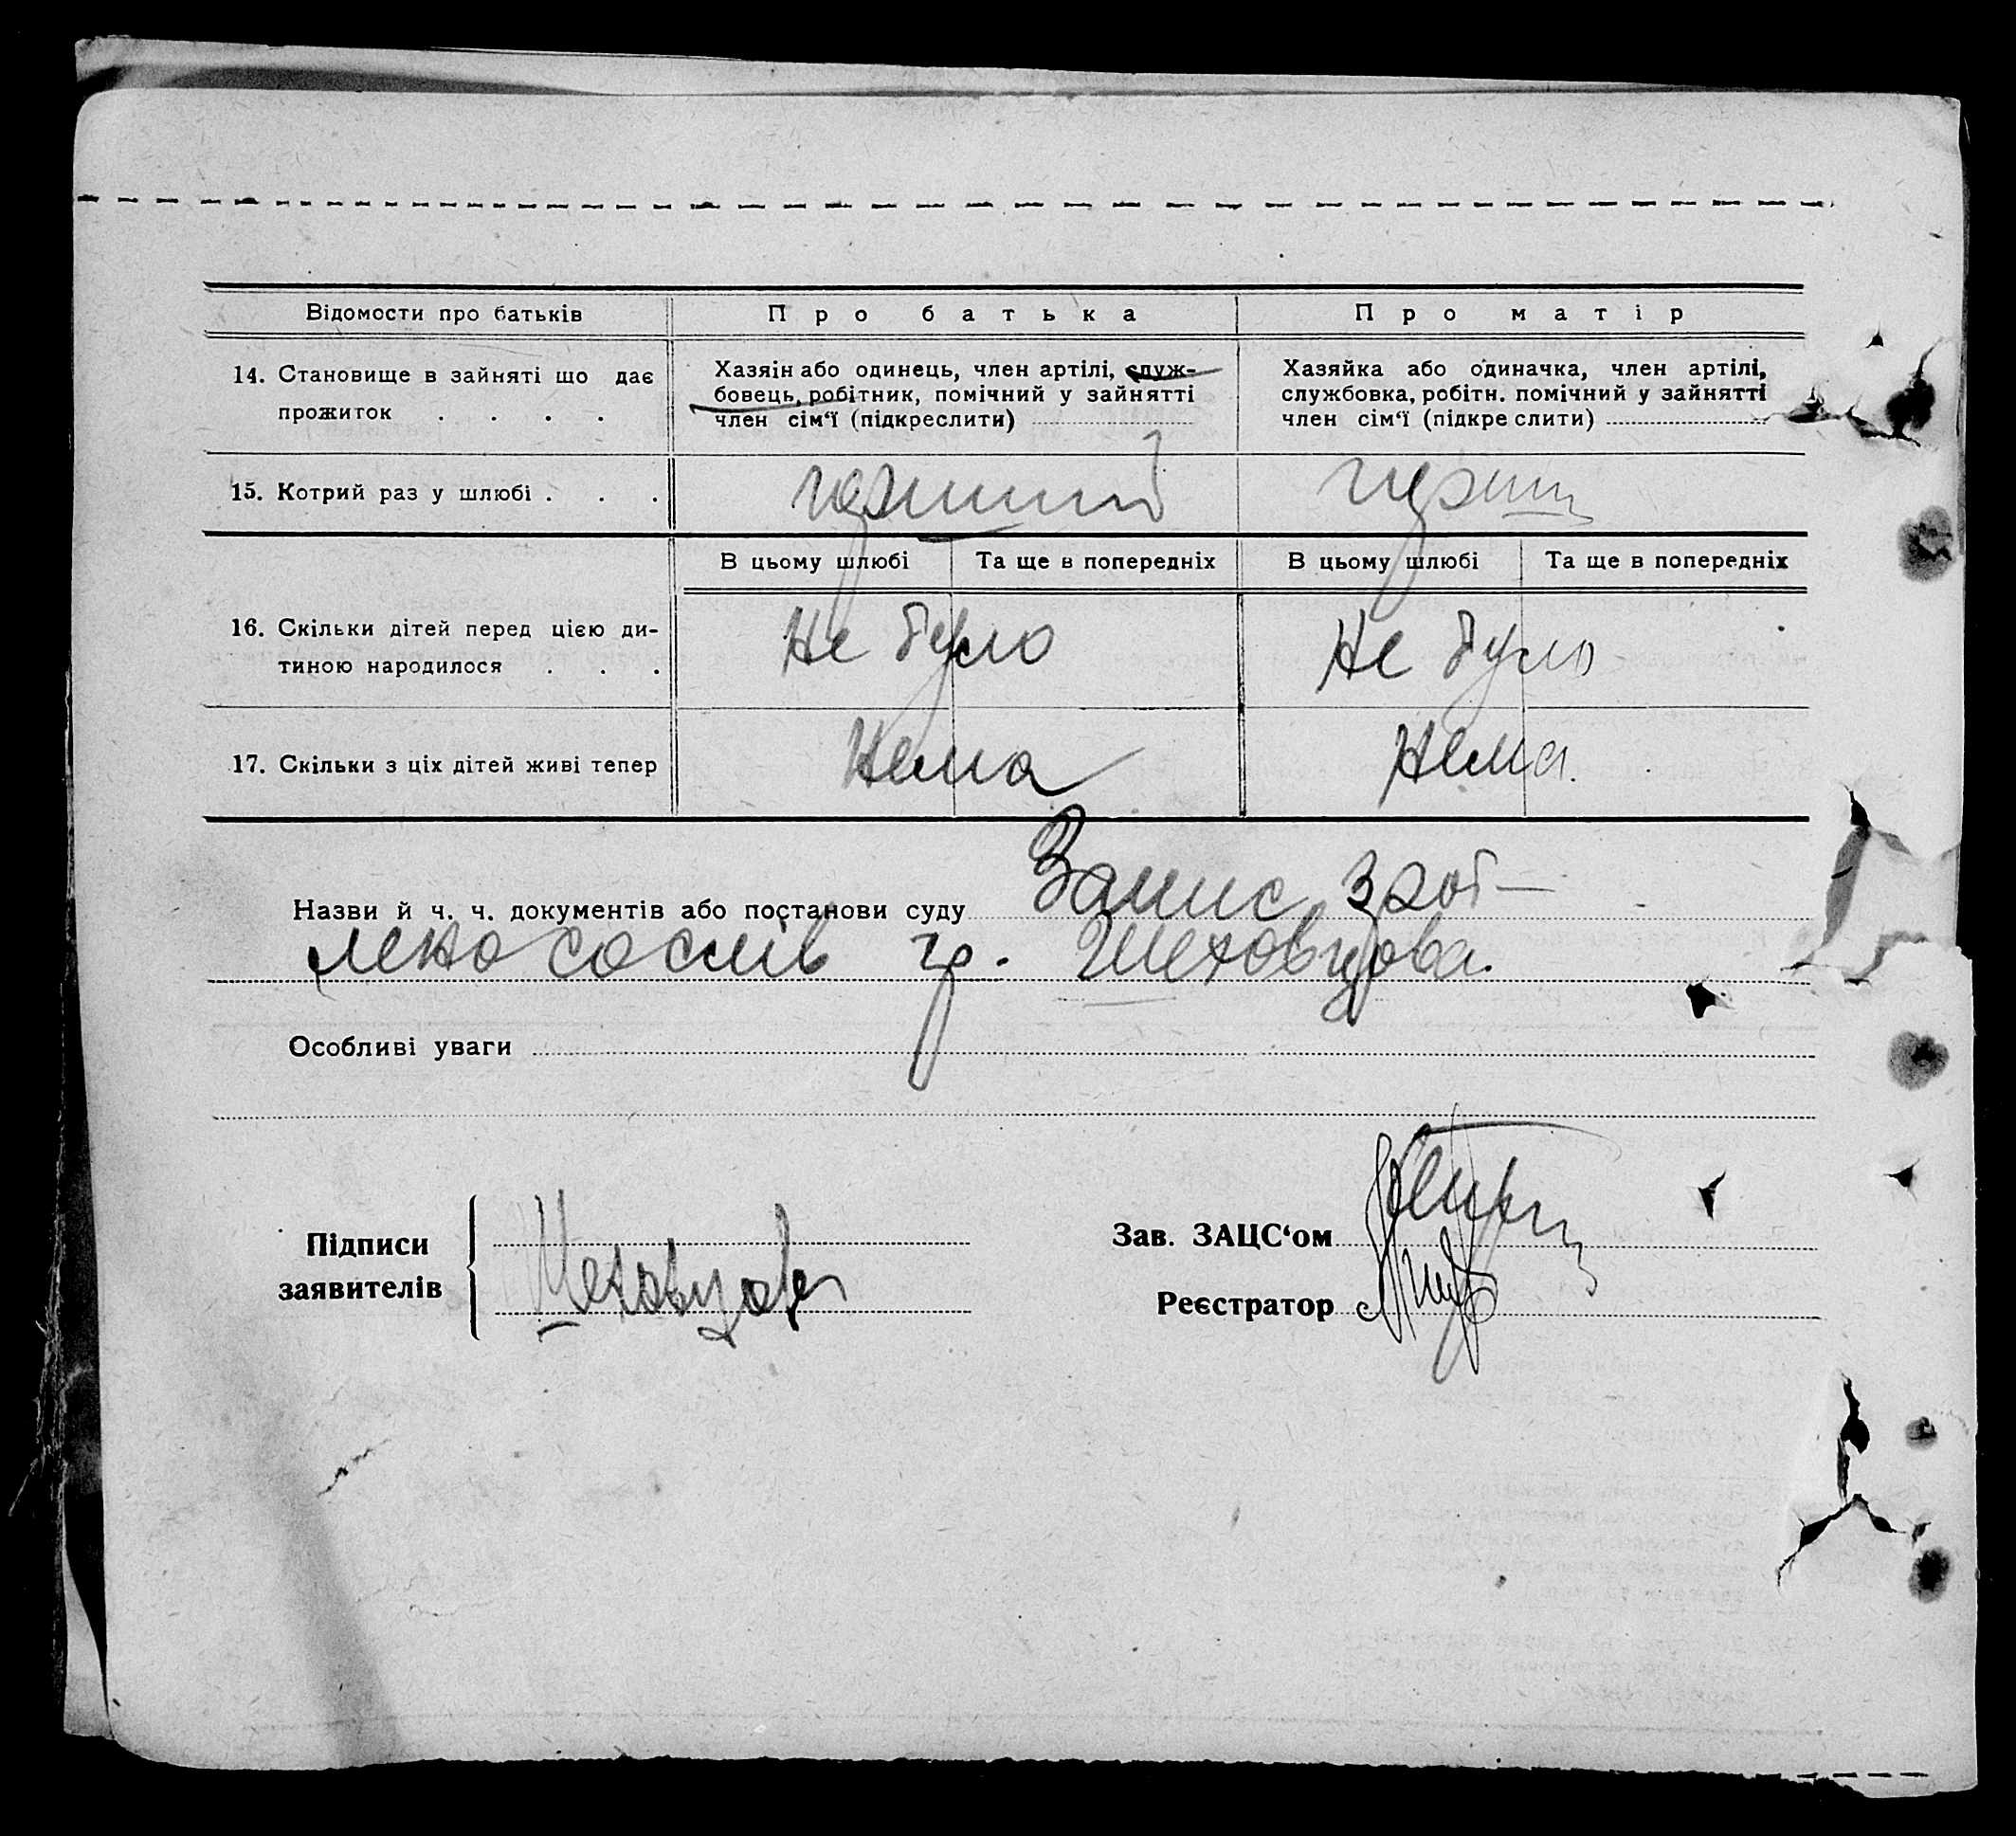 Відомости про батьків
Про батька
Про матір
14. Становище в зайняті що дає
прожиток . . . .
Хазяін або одинець, член артілі, служ-
бовець, робітник, помічний у зайнятті
член сім‘ї (підкреслити)
Хазяйка або одиначка, член артілі,
службовка, робітн. помічний у зайнятті
член сім‘ї (підкре слити)
15. Котрий раз у шлюбі . . .
перший
перши
В цьому шлюбі
Та ще в попередніх
В цьому шлюбі
Та ще в попередніх
16. Скільки дітей перед цією ди-
тиною народилося . . .
Не було
Не було
17. Скільки з ціх дітей живі тепер
Нема
Нема.
Назви й ч. ч. документів або постанови суду Запис з
гр. Шеховцова.
Особливі уваги
Підписи
заявителів
Шеховцов
Зав. ЗАЦС‘ом
Реєстратор